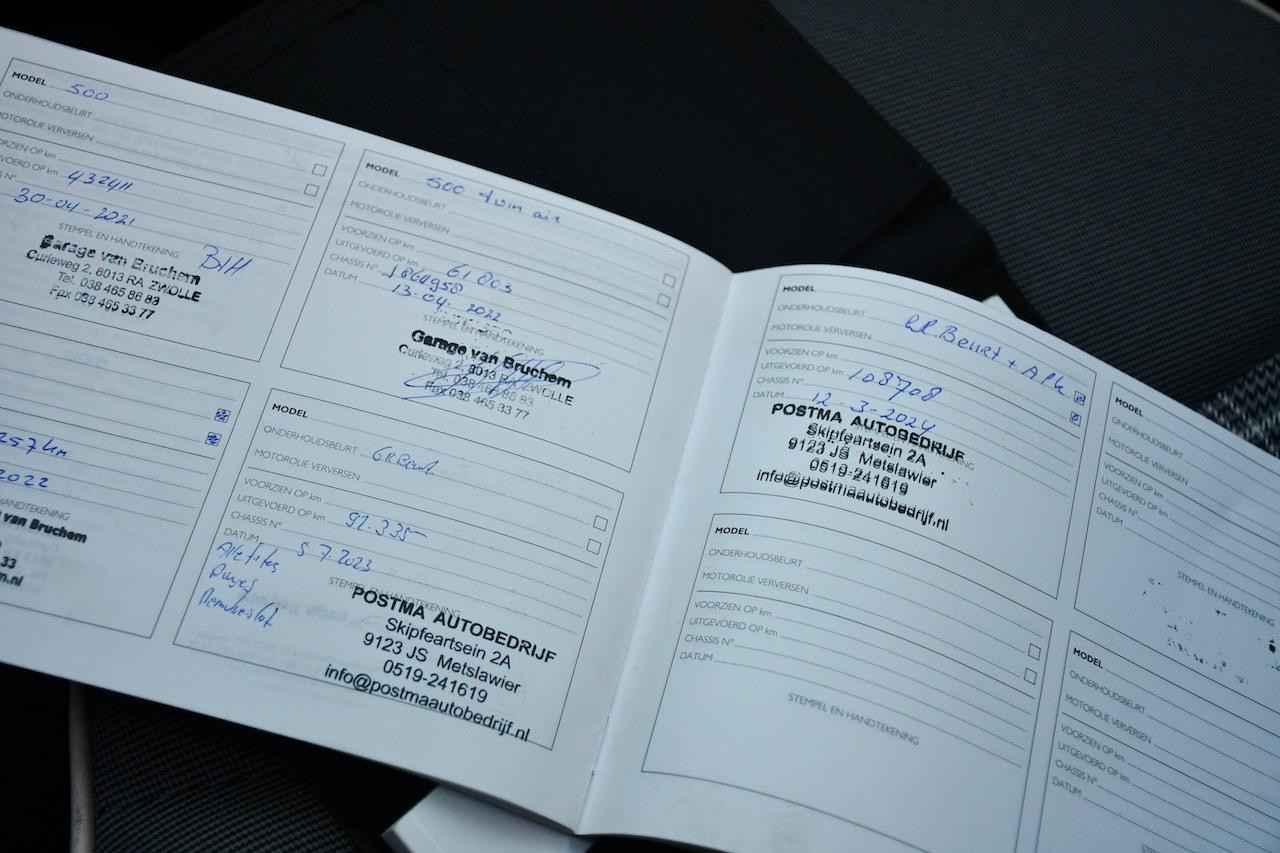 MODEL 500
ONDERHOUDSBEURT
MOTOROLIE VERVERSEN
VOORZIEN OP km
UITGEVOERD OP km 432411
N°
30-04-2021
STEMPEL EN HANDTEKENING
Garage van Bruchem
Curieweg 2, 8013 RA ZWOLLE
Tel. 038 465 86 83
Fax 038 465 33 77
MODEL 500 twin air
ONDERHOUDSBEURT
MOTOROLIE VERVERSEN
VOORZIEN OP km
UITGEVOERD OP km 61003
CHASSIS N° J864958
DATUM 13-04-2022
STEMPEL EN HANDTEKENING
Garage van Bruchem
Curieweg 2, 8013 RA ZWOLLE
Tel. 038 465 86 83
Fax 038 465 33 77
257 km
2022
HANDTEKENING
van Bruchem
33
.nl
MODEL
ONDERHOUDSBEURT GR Beurt
MOTOROLIE VERVERSEN
VOORZIEN OP km
UITGEVOERD OP km 91.335
CHASSIS N°
DATUM 5 7 2023
STEMPEL EN HANDTEKENING
POSTMA AUTOBEDRIJF
Skipfeartsein 2A
9123 JS Metslawier
0519-241619
info@postmaautobedrijf.nl
MODEL
ONDERHOUDSBEURT GR.Beurt + APK
MOTOROLIE VERVERSEN
VOORZIEN OP km
UITGEVOERD OP km 108708
CHASSIS N°
DATUM 12-3-2024
POSTMA AUTOBEDRIJF
Skipfeartsein 2A
9123 JS Metslawier
0519-241619
info@postmaautobedrijf.nl
MODEL
ONDERHOUDSBEURT
MOTOROLIE VERVERSEN
VOORZIEN OP km
UITGEVOERD OP km
CHASSIS N°
DATUM
STEMPEL EN HANDTEKENING
MODEL
ONDERHOUDSBEURT
MOTOROLIE VERVERSEN
VOORZIEN OP km
UITGEVOERD OP km
CHASSIS N°
DATUM
STEMPEL EN HANDTEKENING
MODEL
ONDERHOUDSBEURT
MOTOROLIE VERVERSEN
VOORZIEN OP km
UITGEVOERD OP km
CHASSIS N°
DATUM